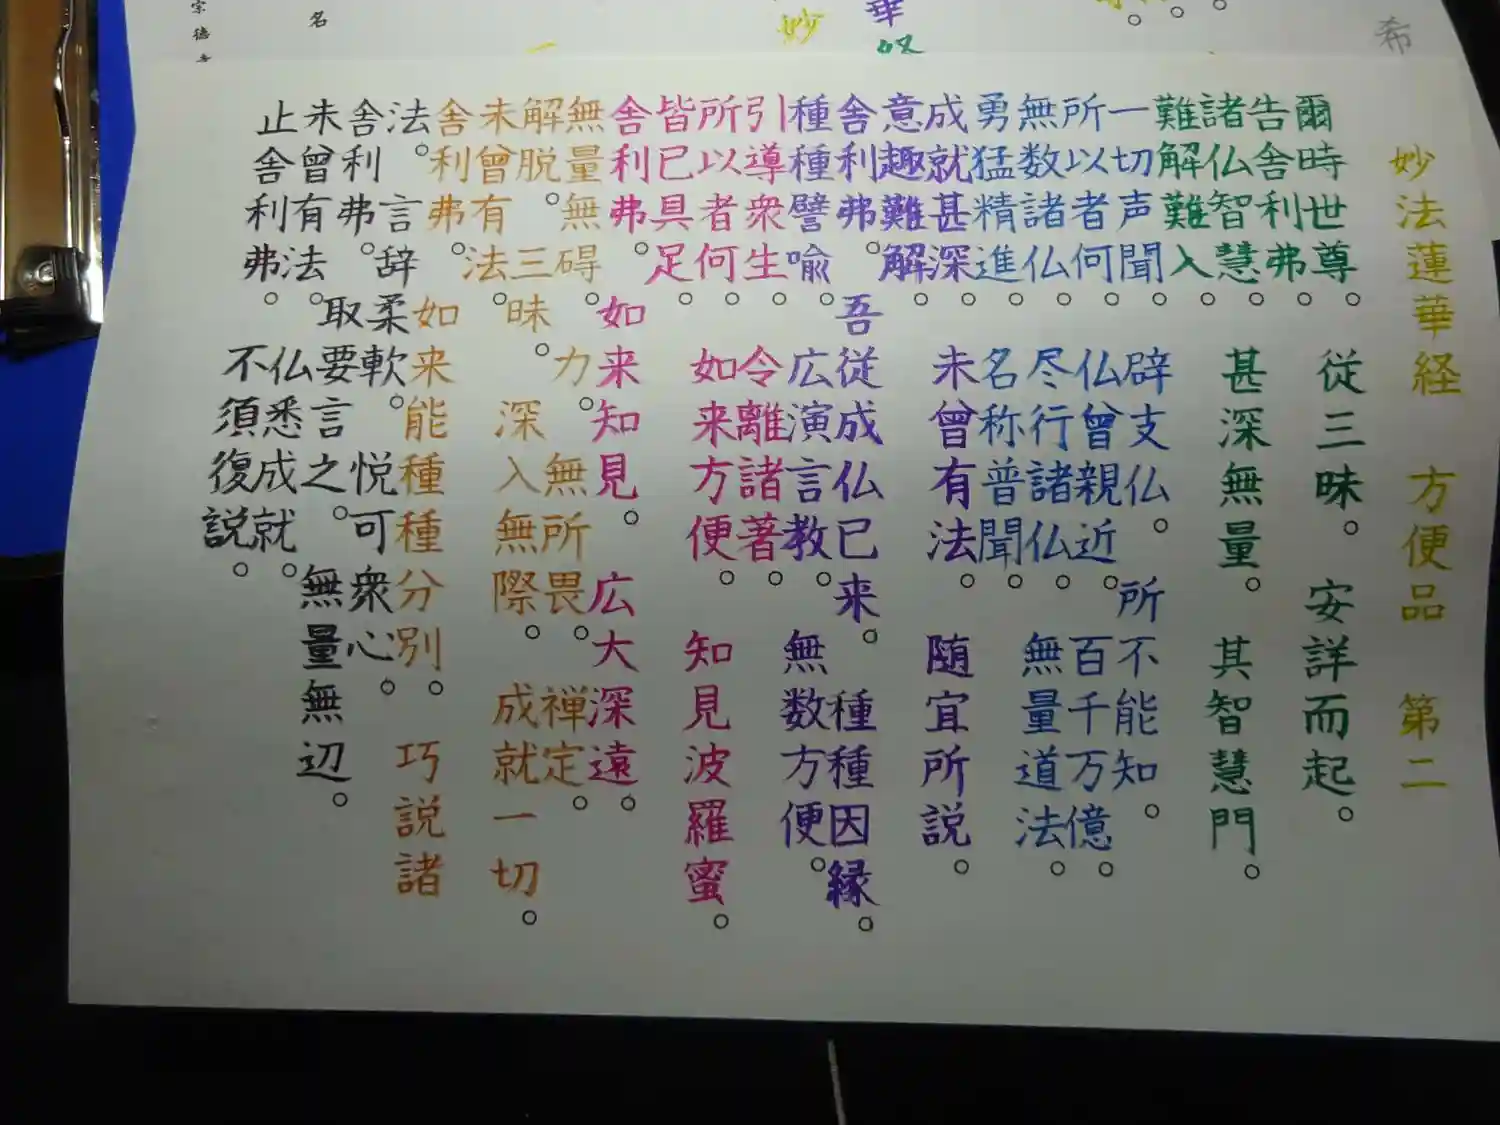 妙法蓮華経 方便品 第二
爾時世尊。従三昧。安詳而起。
告舎利弗。
諸仏智慧。甚深無量。其智慧門。
難解難入。
一切声聞。辟支仏。所不能知。
所以者何。仏曾親近。百千万億。
無数諸仏。尽行諸仏。無量道法。
勇猛精進。名称普聞。
成就甚深。未曾有法。随宜所説。
意趣難解。
舎利弗。吾従成仏已来。種種因縁。
種種譬喩。広演言教。無数方便。
引導衆生。令離諸著。
所以者何。如来方便。知見波羅蜜。
皆已具足。
舎利弗。如来知見。広大深遠。
無量無碍。力。無所畏。禅定。
解脱。三昧。深入無際。成就一切。
未曾有法。
舎利弗。如来能種種分別。巧説諸
法。言辞柔軟。悦可衆心。
舎利弗。取要言之。無量無辺。
未曾有法。仏悉成就。
止舎利弗。不須復説。
希
華
妙
名
宗徳